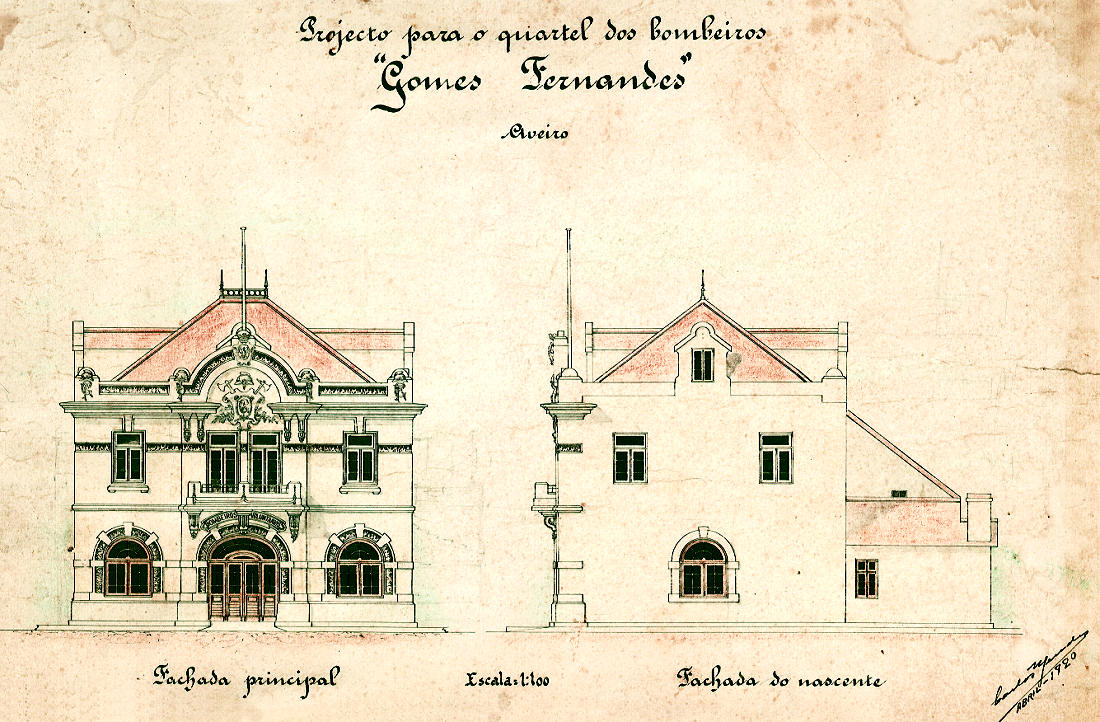 Projecto para o quartel dos bombeiros
"Gomes Fernandes"
Aveiro
BOMBEIROS VOLUNTARIOS
Fachada principal
Escala=1:100
Fachada do nascente
Carlos Mendes
ABRIL-1920